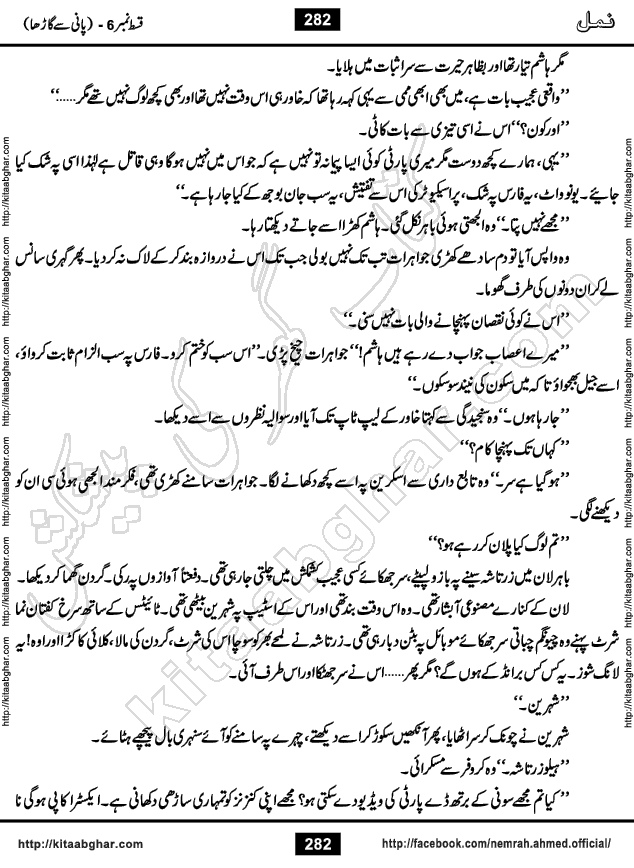 قسط نمبر 6 - (پانی سے گاڑھا)
282
نمل
مگر ہاشم تیار تھا اور بظاہر حیرت سے سر اثبات میں ہلایا۔
’’واقعی عجیب بات ہے، میں بھی ابھی ممی سے یہی کہہ رہا تھا کہ خاور ہی اس وقت نہیں تھا اور بھی کچھ لوگ نہیں تھے مگر......‘‘
’’اور کون؟‘‘ اس نے اسی تیزی سے بات کاٹی۔
’’یہی، ہمارے کچھ دوست مگر میری پارٹی کوئی ایسا پیمانہ تو نہیں ہے کہ جو اس میں نہیں ہوگا وہی قاتل ہے لہٰذا اسی پہ شک کیا
جائے۔ یو نو واٹ، یہ فارس پہ شک، پراسیکیوٹر کی اس سے تفتیش، یہ سب جان بوجھ کے کیا جا رہا ہے۔‘‘
’’مجھے نہیں پتا۔‘‘ وہ الجھتی ہوئی باہر نکل گئی۔ ہاشم کھڑا اسے جاتے دیکھتا رہا۔
وہ واپس آیا تو دم سادھے کھڑی جواہرات تب تک نہیں بولی جب تک اس نے دروازہ بند کر کے لاک نہ کر دیا۔ پھر گہری سانس
لے کر ان دونوں کی طرف گھوما۔
’’اس نے کوئی نقصان پہنچانے والی بات نہیں سنی۔‘‘
’’میرے اعصاب جواب دے رہے ہیں ہاشم!‘‘ جواہرات چیخ پڑی۔ ’’اس سب کو ختم کرو۔ فارس پہ سب الزام ثابت کرواؤ،
اسے جیل بھجواؤ تا کہ میں سکون کی نیند سو سکوں۔‘‘
’’جا رہا ہوں۔‘‘ وہ سنجیدگی سے کہتا خاور کے لیپ ٹاپ تک آیا اور سوالیہ نظروں سے اسے دیکھا۔
’’کہاں تک پہنچا کام؟‘‘
’’ہو گیا ہے سر۔‘‘ وہ تابع داری سے اسکرین پہ اسے کچھ دکھانے لگا۔ جواہرات سامنے کھڑی تھی، فکر مند الجھی ہوئی سی ان کو
دیکھنے لگی۔
’’تم لوگ کیا پلان کر رہے ہو؟‘‘
باہر لان میں زرتاشہ سینے پہ بازو لپیٹے، سر جھکائے کسی عجیب کشمکش میں چلتی جا رہی تھی۔ دفعتاً آوازوں پہ رکی۔ گردن گھما کر دیکھا۔
لان کے کنارے مصنوعی آبشار تھی۔ وہ اس وقت بند تھی اور اس کے اسٹیپ پہ شہرین بیٹھی تھی۔ ٹائیٹس کے ساتھ سرخ کفتان نما
شرٹ پہنے وہ چیونگم چباتی سر جھکائے موبائل پہ بٹن دبا رہی تھی۔ زرتاشہ نے لمحے بھر کو سوچا اس کی شرٹ، گردن کی مالا، کلائی کا کڑا اور اوہ! یہ
لانگ شوز۔ یہ کس کس برانڈ کے ہوں گے؟ مگر پھر...... اس نے سر جھٹکا اور اس طرف آئی۔
’’شہرین۔‘‘
شہرین نے چونک کر سر اٹھایا، پھر آنکھیں سکوڑ کر اسے دیکھتے، چہرے پہ سامنے کو آئے سنہری بال پیچھے ہٹائے۔
’’ہیلو زرتاشہ۔‘‘ وہ کروفر سے مسکرائی۔
’’کیا تم مجھے سونی کے برتھ ڈے پارٹی کی ویڈیو دے سکتی ہو؟ مجھے اپنی کزنز کو تمہاری ساڑھی دکھانی ہے۔ ایکسٹرا کاپی ہوگی نا
http://kitaabghar.com
282
http://facebook.com/nemrah.ahmed.official/
http://kitaabghar.com http://kitaabghar.com http://kitaabghar.com http://kitaabghar.com http://kitaabghar.com http://kitaabghar.com
http://kitaabghar.com http://kitaabghar.com http://kitaabghar.com http://kitaabghar.com http://kitaabghar.com http://kitaabghar.com
کتاب گھر کی پیشکش
kitaabghar.com